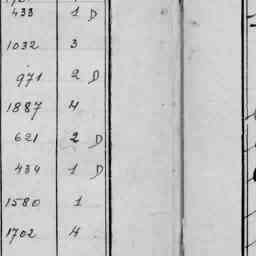 433 1 D
1032 3
971 2 D
1887 4
621 2 D
434 1 D
1580 1
1702 4